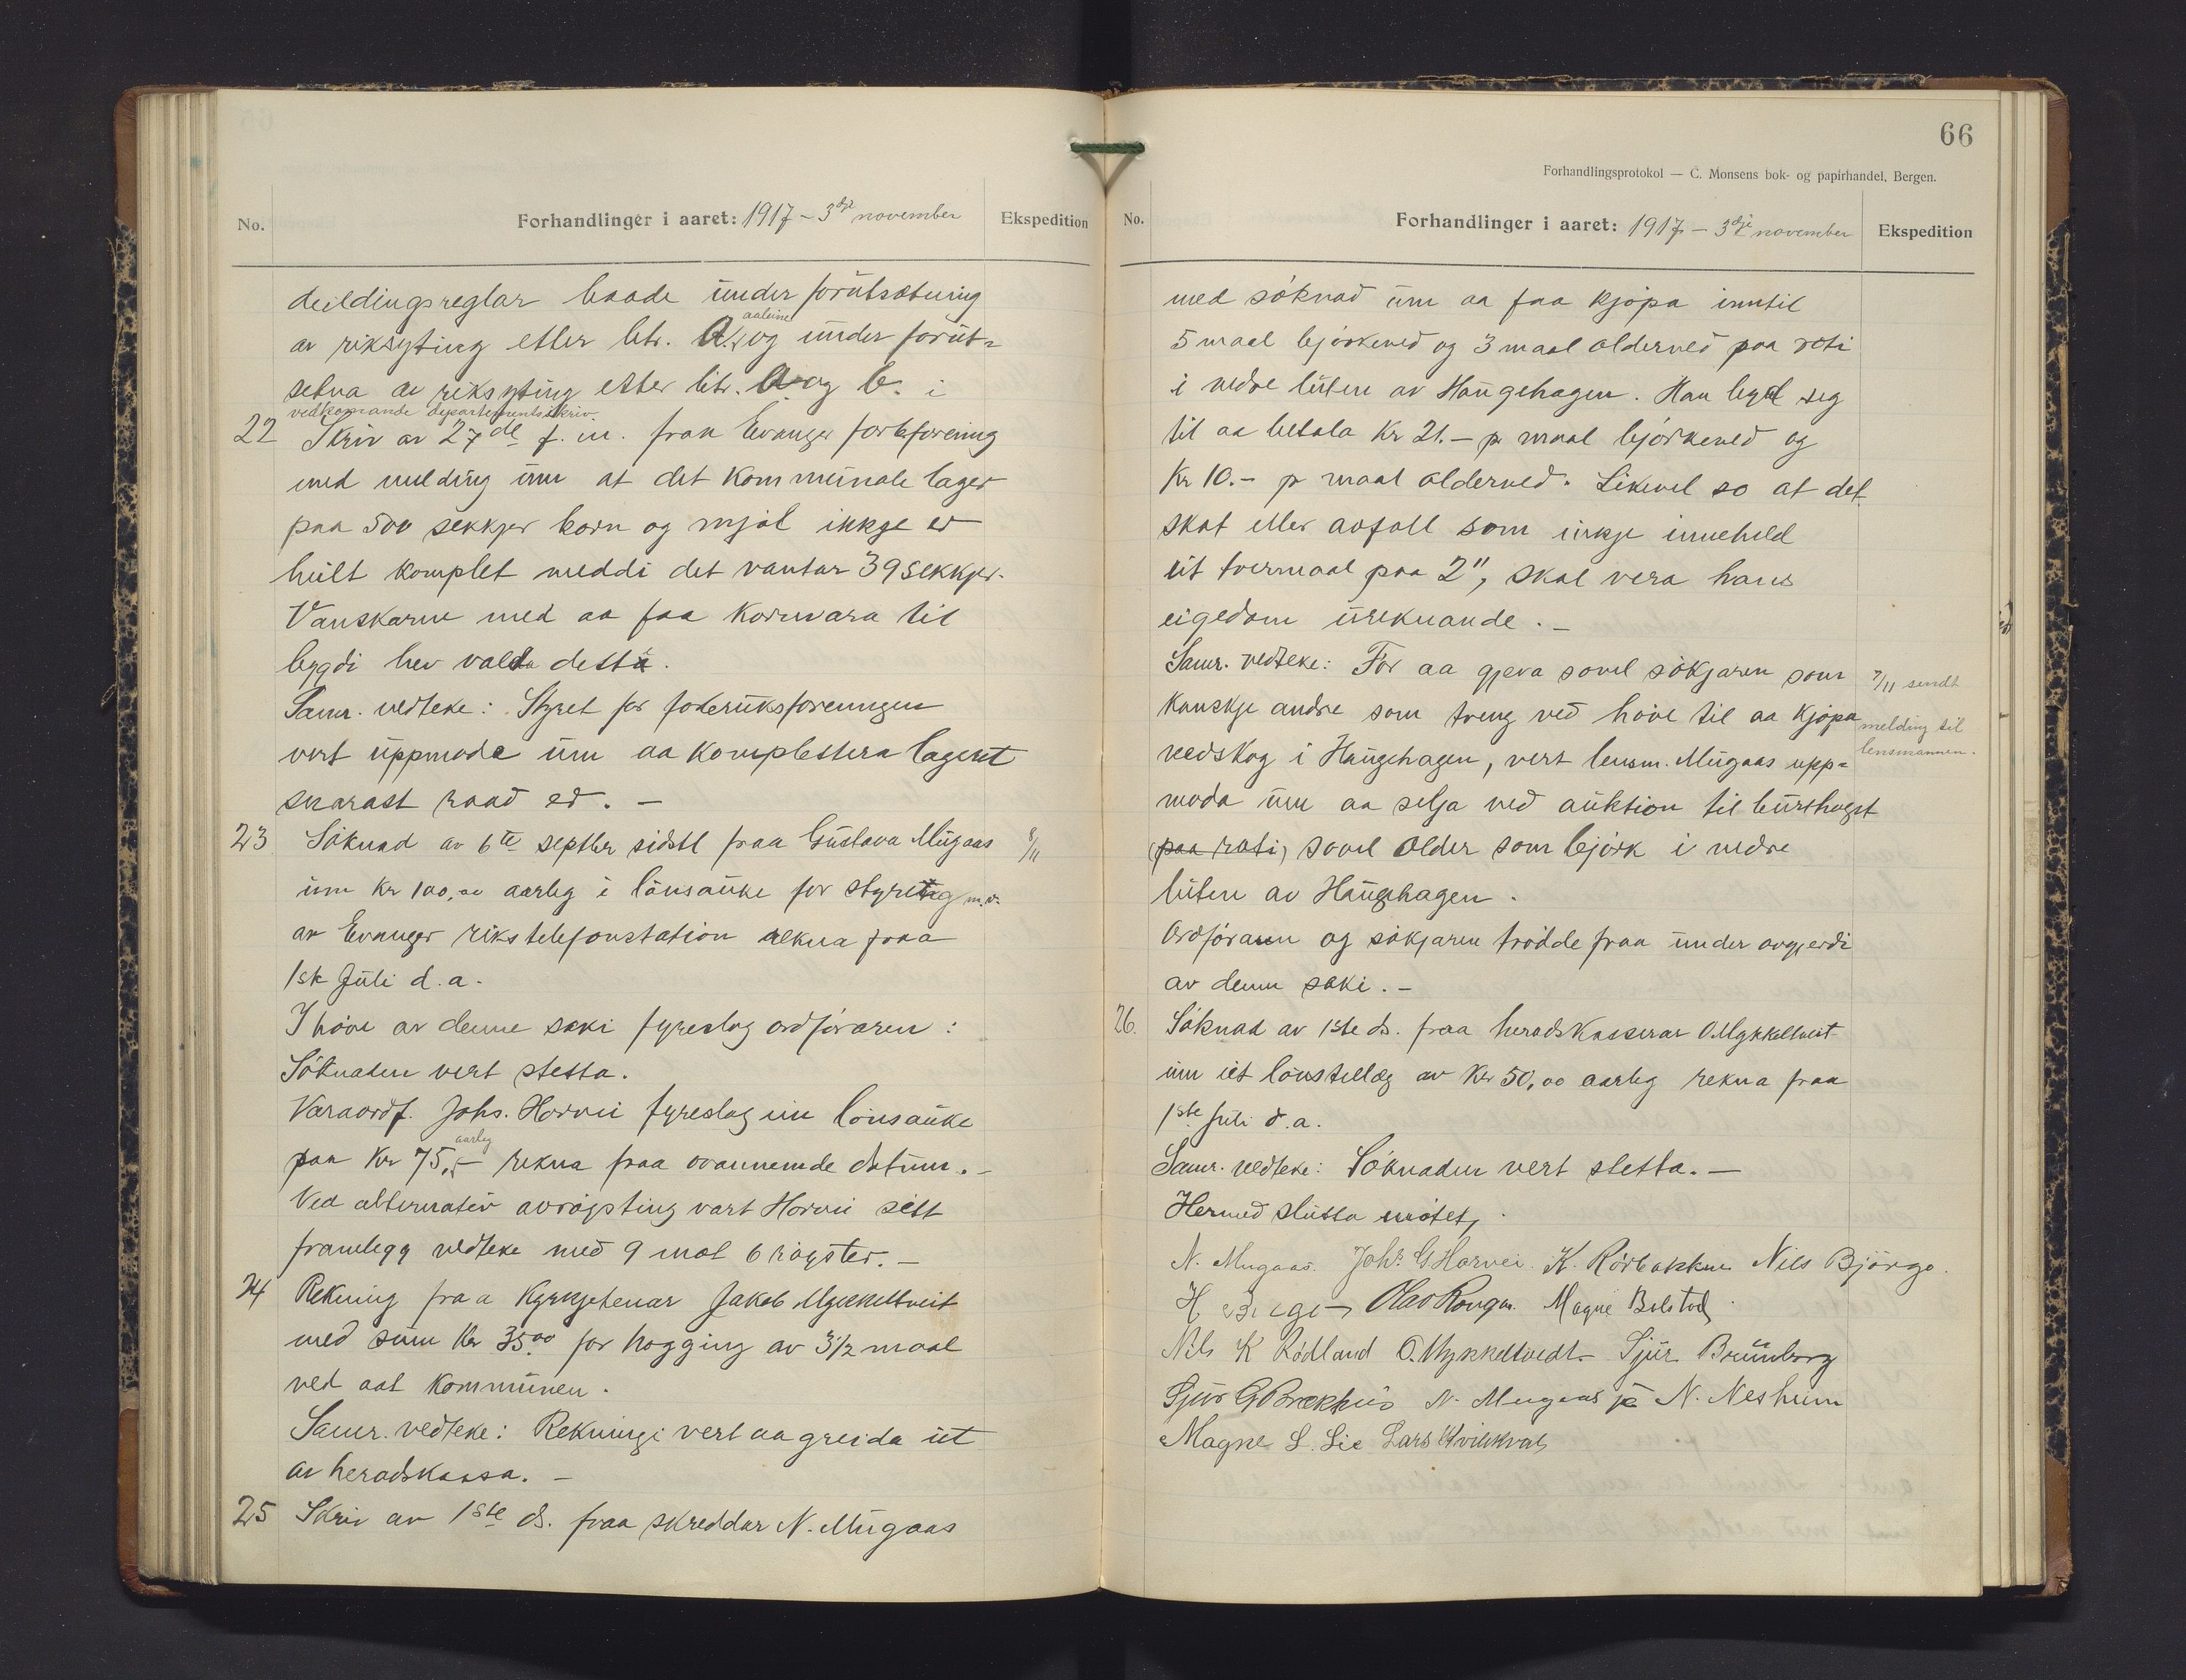 No. Forhandlinger i aaret: 1917 – 3dje november Ekspedition
deildingsreglar baade under forutsetning
av riksyting etter litr. A. aaleine og under forut-
setna av riksyting etter litr. A og b. i
vedkomande departementsskriv.
22 Skriv av 27de f. m. fraa Evanger forbforening
med melding um at det kommunale lager
paa 500 sekkjer korn og mjøl ikkje er
heilt komplet meddi det vantar 39 sekkjer.
Vanskarne med aa faa kornvara til
bygdi hev valda detta.
Samr. vedteke: Styret for forbruksforeningen
vert uppmoda um aa komplettera lageret
snarast raad er. –
23 Søknad av 6te septbr sidstl fraa Gustava Mugaas 8/11
um kr 100,00 aarleg i lønsauke for styring m.v.
av Evanger rikstelefonstation rekna fraa
1ste Juli d.a.
I høve av denne saki fyreslog ordføraren:
Søknaden vert stetta.
Varaordf. Johs. Horvei fyreslog ein lønsauke
paa kr 75,– aarleg rekna fraa ovannemde datum. –
Ved alternativ avrøysting vart Horvei sitt
framlegg vedteke med 9 mot 6 røyster. –
24 Rekning fraa Kyrkjetenar Jakob Mykkeltveit
med sum kr 35.00 for hogging av 3½ maal
ved aat kommunen.
Samr. vedteke: Rekningi vert aa greida ut
av heradskassa. –
25 Skriv av 1ste ds. fraa skreddar N. Mugaas
66
Forhandlingsprotokol — C. Monsens bok- og papirhandel, Bergen.
No. Forhandlinger i aaret: 1917 – 3dje november Ekspedition
med søknad um aa faa kjøpa inntil
5 maal bjørkeved og 3 maal olderved paa roti
i nedre luten av Haugehagen. Han byd seg
til aa betala Kr 21.– pr maal bjørkeved og
Kr 10.– pr maal olderved. Likevel so at det
skat eller avfall som inkje inneheld
eit tvermaal paa 2", skal vera hans
eigedom ureknande. –
Samr. vedteke: For aa gjeva sovel søkjaren som 7/11 sendt
kanskje andre som treng ved høve til aa kjøpa melding til
vedskog i Haugehagen, vert lensm. Mugaas upp- lensmannen.
moda um aa selja ved auktion til burthogst
(paa roti) sovel older som bjørk i nedre
luten av Haugehagen.
Ordføraren og søkjaren trødde fraa under avgjerdi
av denne saki. –
26. Søknad av 1ste ds. fraa heradskasserar O. Mykkeltveit
um eit lønstillæg av Kr 50,00 aarleg rekna fraa
1ste Juli d.a.
Samr. vedteke: Søknaden vert stetta. –
Hermed slutta møtet,
N. Mugaas. Johs G. Horvei. K. Rørbakken Nils Bjørgo.
Olav Rongen. Magne Bolstad
Nils K Rødland O. Mykkeltvedt Sjur Brunborg
Sjur G Brækhus N. Mugaas jr N. Nesheim
Magne L. Lie Lars Kvilekval